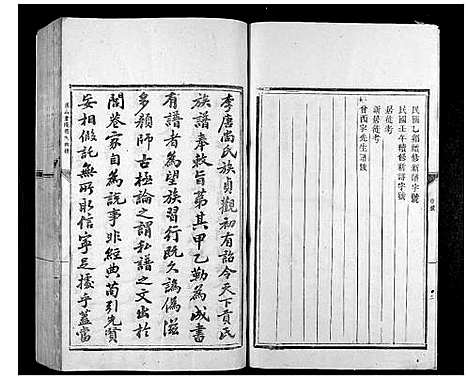 民國乙卯續修新譜字號
民國壬午續修新譜字號
居徙考
新居徙考
曾酉字先生譜號
李唐尚氏族貞觀初有詔令天下貢氏
族譜奉敕旨第其甲乙勒為成書
有譜者為望族習行既久譌偽滋
多顏師古極論之謂私譜之文出於
閭巷家自為說事非經典苟引先賢
妄相假託無所取信寧足據乎蓋當